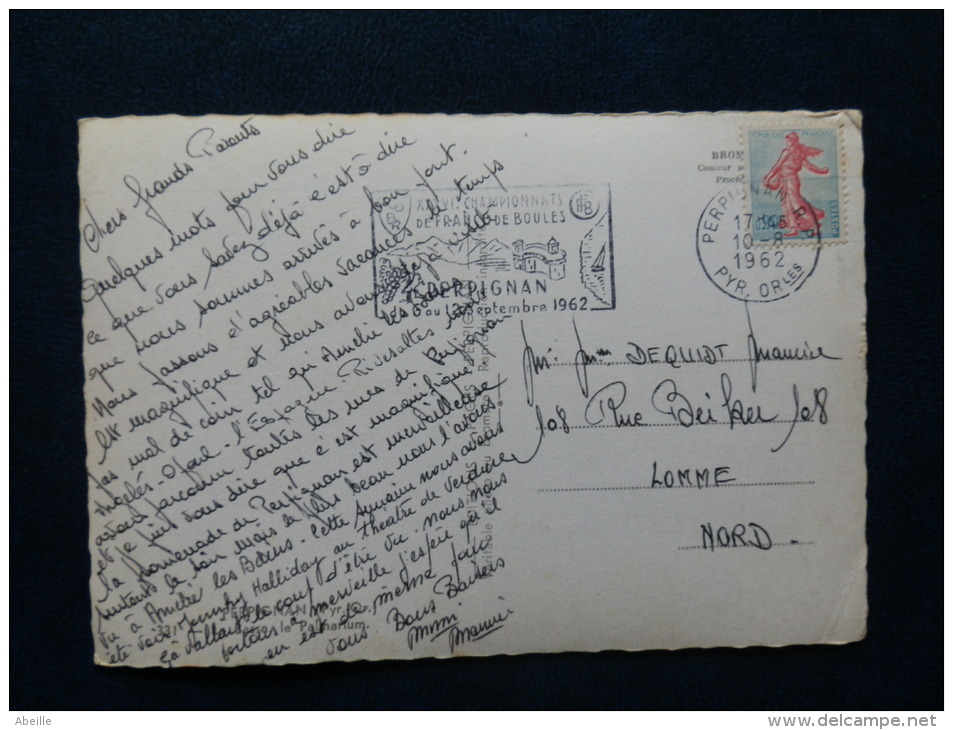 Chers Grands Parents
Quelques mots pour vous dire
ce que vous savez déjà c'est à dire
que nous sommes arrivés à bon port.
Nous passons d'agréables vacances le temps
est magnifique et nous avons déjà visité
pas mal de coin tel qu'Amélie les Bains
Argelès - l'Espagne - Rivesaltes
avons parcouru toutes les rues de Perpignan
et je puis vous dire que c'est magnifique
La promenade de Perpignan est merveilleuse
surtout le soir mais le plus beau nous l'avons
vu à Amélie les Bains - Cette semaine nous avons
été voir Jonhy Halliday au Théâtre de Verdure
çà vallait le coup d'être vu nous nous
portons à merveille j'espère qu'il
en est de même pour
vous Bons Baisers
Mimi
Maurice
XXXVI. CHAMPIONNATS
DE FRANCE DE BOULES
PERPIGNAN
du 6 au 12 Septembre 1962
PERPIGNAN R.P.
10-8
1962
PYR. ORLES
REPUBLIQUE FRANÇAISE
POSTES
BROM
Couleur
Procéd
EDITIONS
Reproduction
PERPIGNAN (Pyr.-Or.)
le Palmarium.
Mr Mme DEQUIDT Maurice
108 Rue 108
LOMME
NORD -
Abeille
http://www.delcampe.net